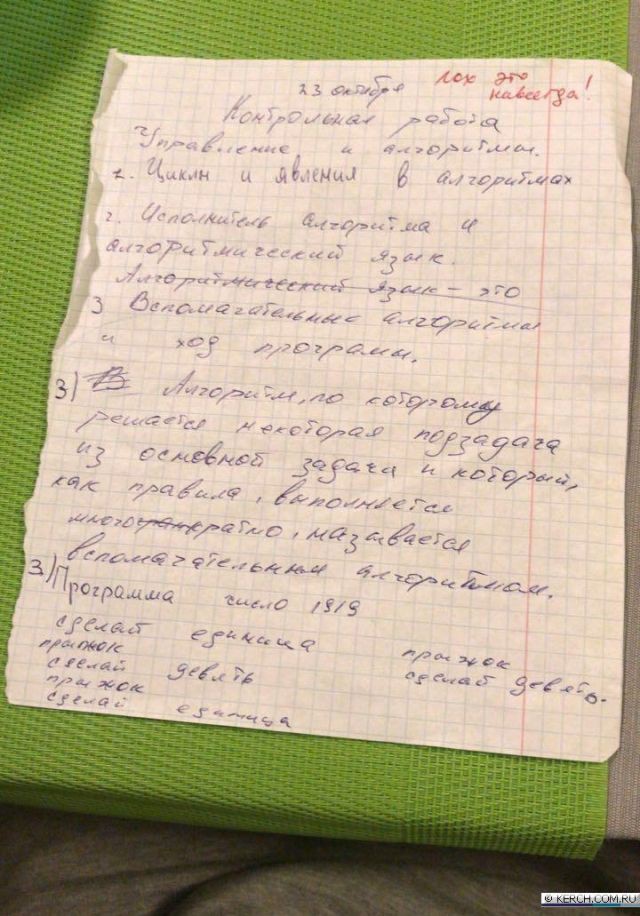 23 октября
лох это
навсегда!
Контрольная работа
Управление и алгоритмы.
1. Циклы и явления в алгоритмах
2. Исполнитель алгоритма и
алгоритмический язык.
Алгоритмический язык - это
3 Вспомагательные алгоритмы
и ход програмы.
3) Алгоритм, по которому
решается некоторая подзадача
из основной задачи и который,
как правила, выполняется
многократно, называется
вспомагательным алгоритмом.
3) Программа число 1919
сделай единица
прыжок
сделай девять
прыжок
сделай единица
прыжок
сделай девять.
© KERCH.COM.RU